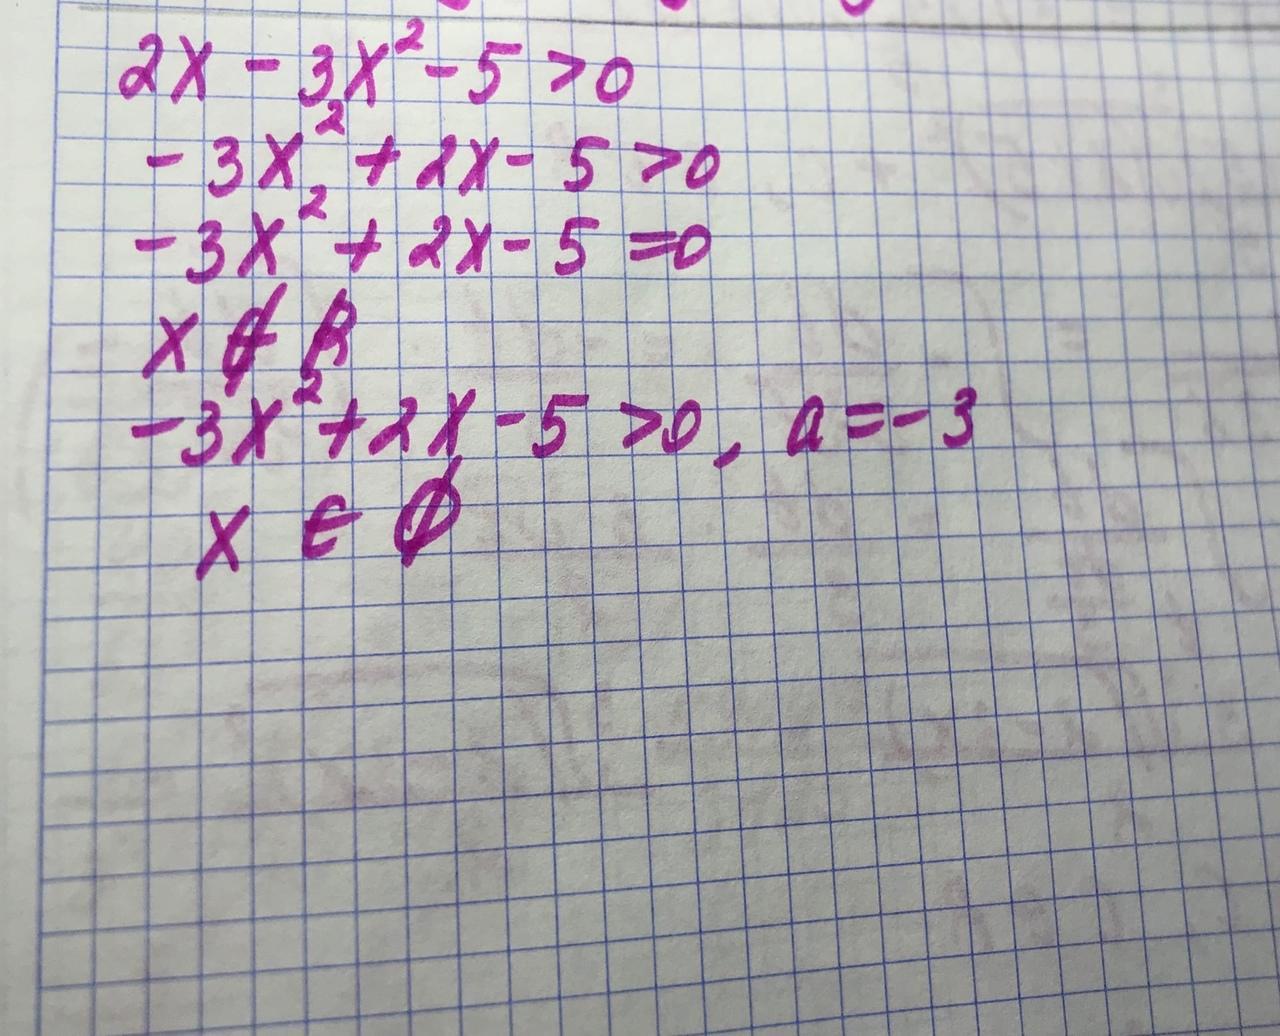 2x - 3x² - 5 > 0
- 3x² + 2x - 5 > 0
- 3x² + 2x - 5 = 0
x ∉ R
- 3x² + 2x - 5 > 0, a = - 3
x ∈ ∅